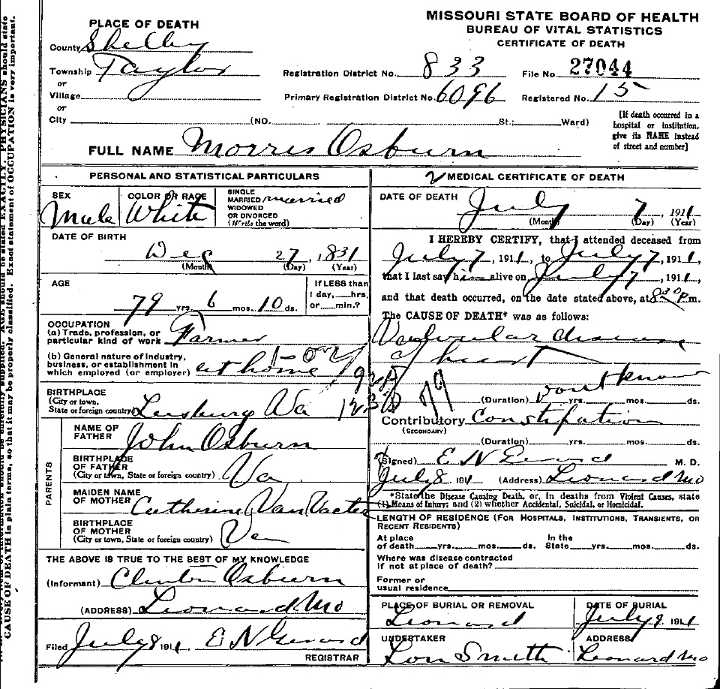 MISSOURI STATE BOARD OF HEALTH
BUREAU OF VITAL STATISTICS
CERTIFICATE OF DEATH
PLACE OF DEATH
County Shelby
Township Taylor
or
Village
or
City (NO. St.; Ward)
Registration District No. 833 File No. 27044
Primary Registration District No. 6096 Registered No. 15
[If death occurred in a
hospital or institution,
give its NAME instead
of street and number]
FULL NAME Morris Osburn
PERSONAL AND STATISTICAL PARTICULARS
SEX
Male
COLOR OR RACE
White
SINGLE
MARRIED married
WIDOWED
OR DIVORCED
(Write the word)
DATE OF BIRTH
Dec 27, 1831
(Month) (Day) (Year)
AGE
79 yrs. 6 mos. 10 ds.
If LESS than
1 day,....hrs.
or....min.?
OCCUPATION
(a) Trade, profession, or
particular kind of work Farmer
(b) General nature of industry,
business, or establishment in
which employed (or employer) at home
BIRTHPLACE
(City or town,
State or foreign country) Leesburg Va
PARENTS
NAME OF
FATHER
John Osburn
BIRTHPLACE
OF FATHER
(City or town, State or foreign country) Va
MAIDEN NAME
OF MOTHER
Catherine
BIRTHPLACE
OF MOTHER
(City or town, State or foreign country) Va
THE ABOVE IS TRUE TO THE BEST OF MY KNOWLEDGE
(Informant) Clinton Osburn
(ADDRESS) Leonard Mo
Filed July 8 1911 E N Gerard
REGISTRAR
2 MEDICAL CERTIFICATE OF DEATH
DATE OF DEATH
July 7, 1911
(Month) (Day) (Year)
I HEREBY CERTIFY, that I attended deceased from
July 7, 1911, to July 7, 1911,
that I last saw him alive on July 7, 1911,
and that death occurred, on the date stated above, at 8 30 P.m.
The CAUSE OF DEATH* was as follows:
Valvular disease
of heart
79
dont know
(Duration) yrs. mos. ds.
Contributory Constipation
(SECONDARY)
(Duration) yrs. mos. ds.
(Signed) E N Gerard M. D.
July 8 1911 (Address) Leonard Mo
*State the Disease Causing Death, or, in deaths from Violent Causes, state
(1) Means of Injury; and (2) whether Accidental, Suicidal, or Homicidal.
LENGTH OF RESIDENCE (FOR HOSPITALS, INSTITUTIONS, TRANSIENTS, OR
RECENT RESIDENTS)
At place In the
of death....yrs.....mos.....ds. State....yrs.....mos.....ds.
Where was disease contracted
if not at place of death?
Former or
usual residence
PLACE OF BURIAL OR REMOVAL
Leonard
DATE OF BURIAL
July 9 1911
UNDERTAKER
Lon Smith
ADDRESS
Leonard Mo
CAUSE OF DEATH in plain terms, so that it may be properly classified. Exact statement of OCCUPATION is very important.